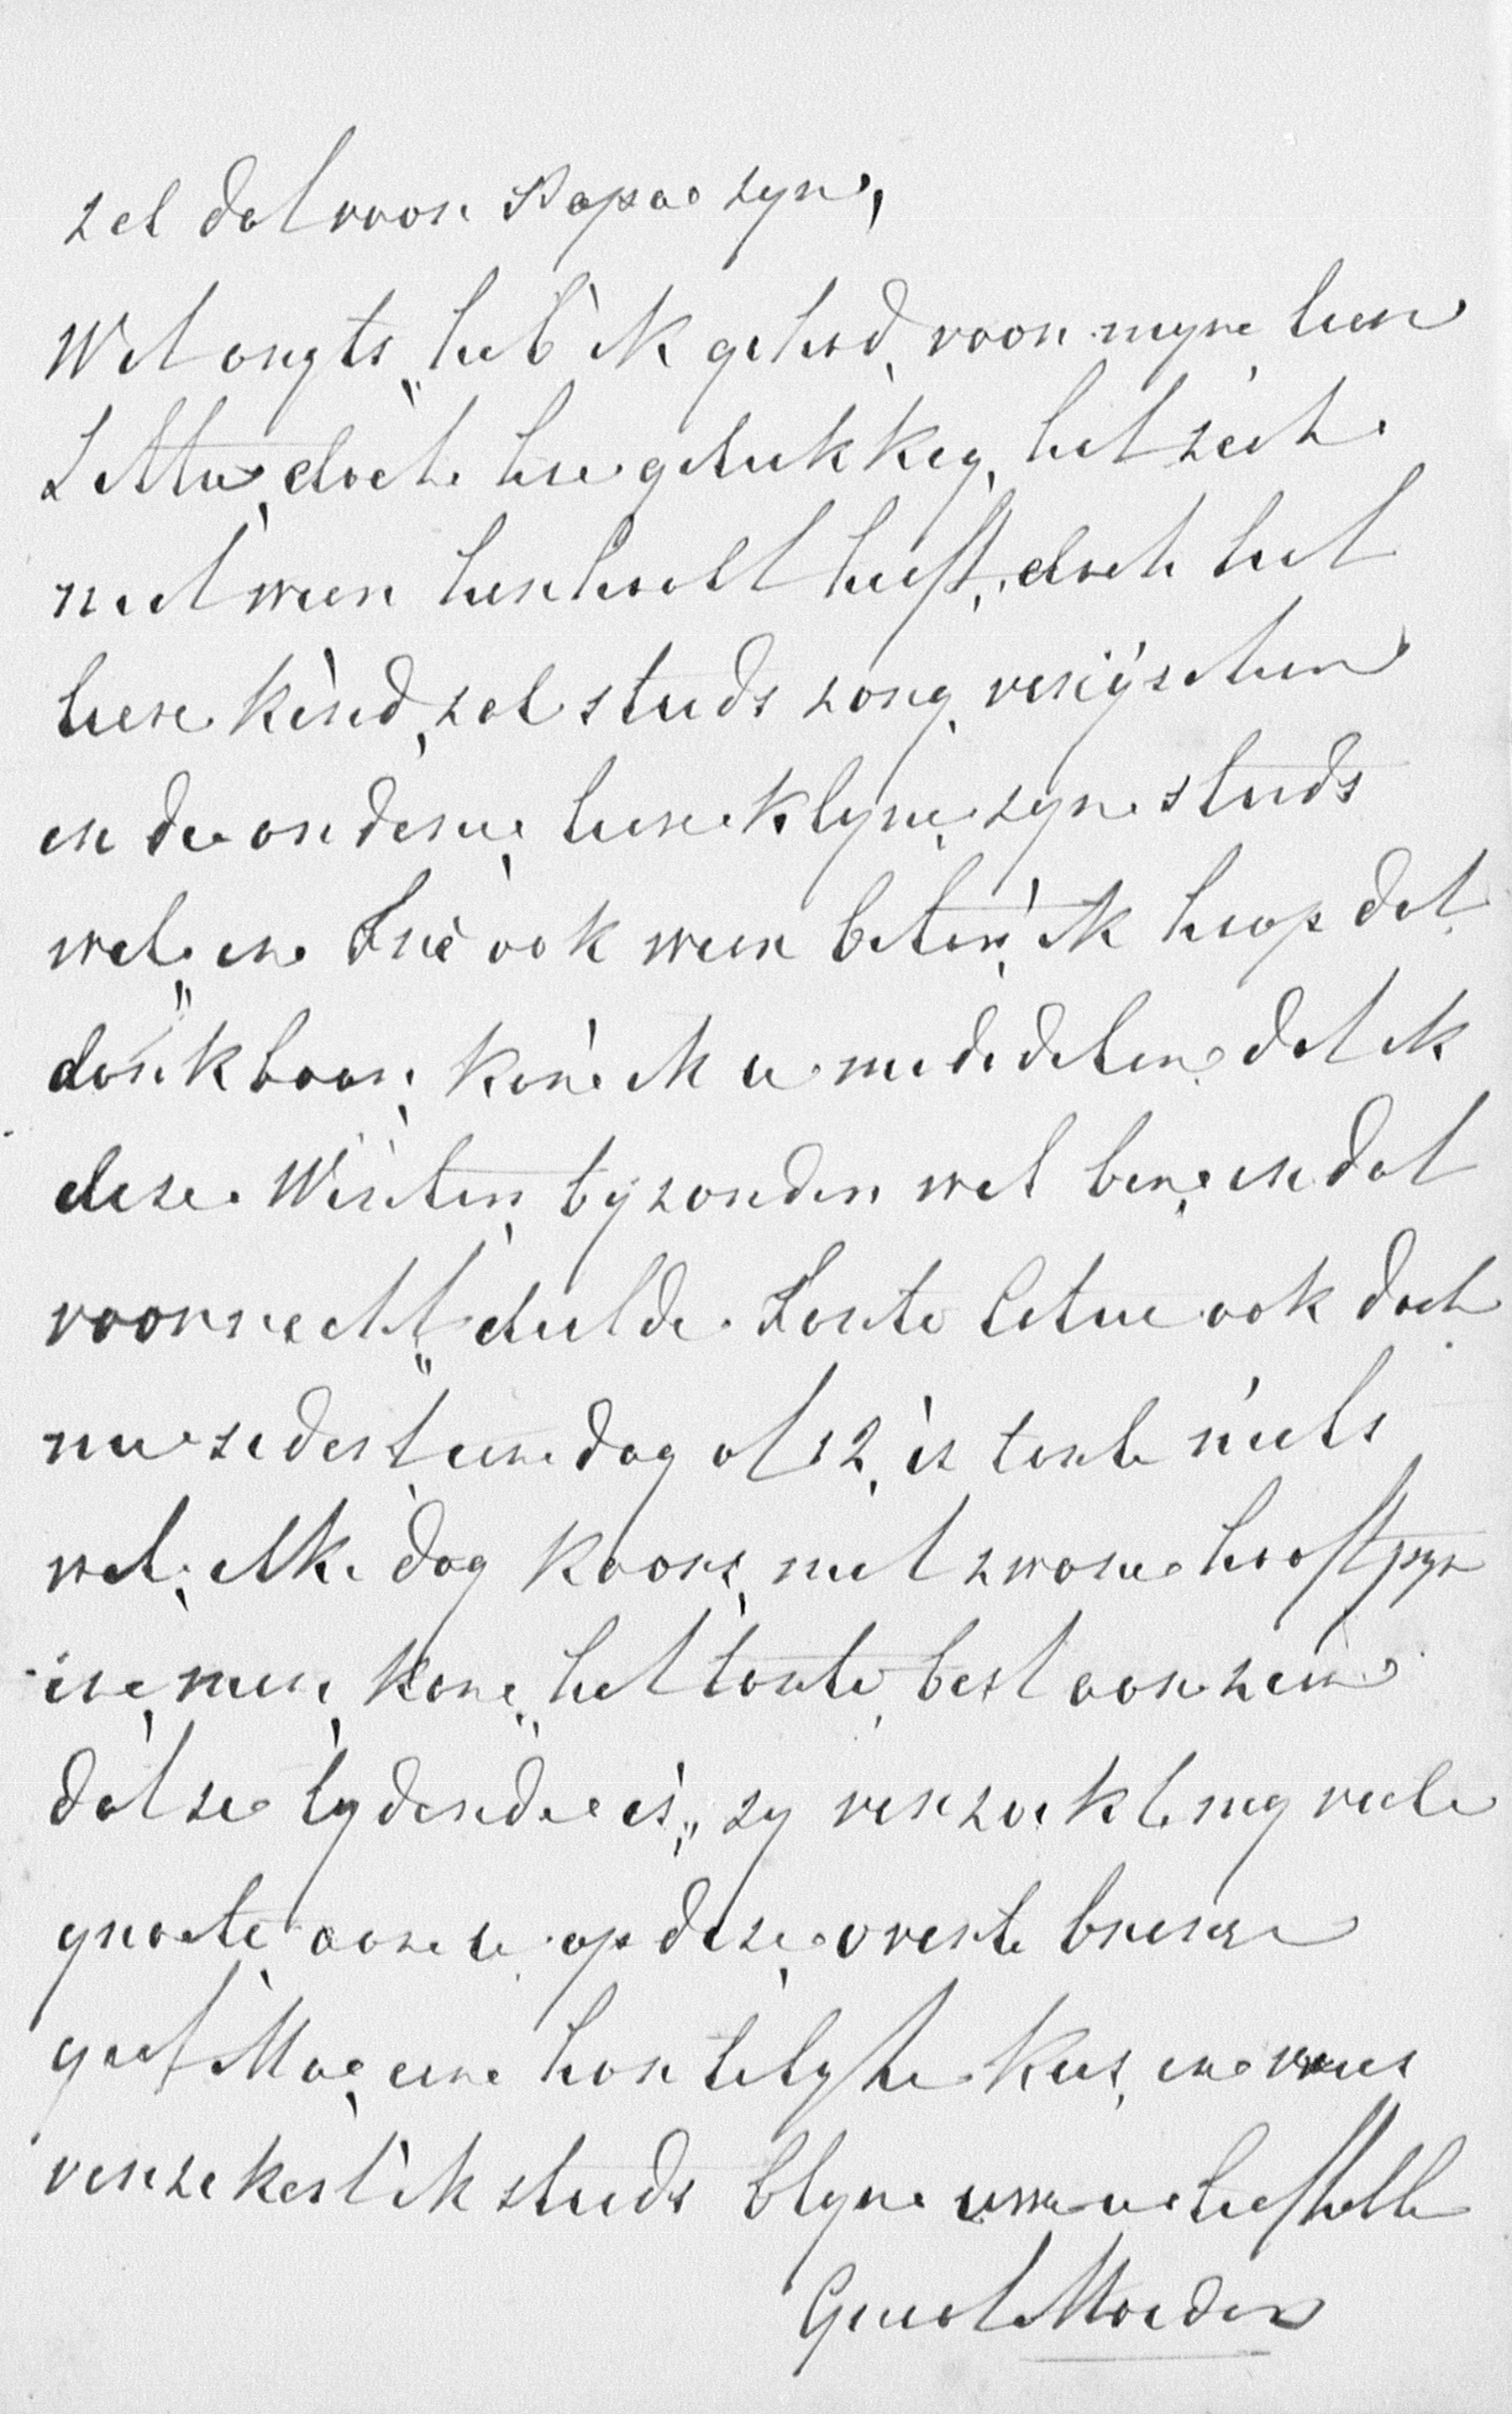 zal dat voor Papa zyn,
Wat angts„ heb ik gehad, voor myne lieve
Lettie, doch hoe gelukkig, het zich
niet weer herhaalt heeft, doch het
lieve kind, zal steeds zorg vereyschen
en de andere, lieve kleyne, zyn steeds
wel, en Fré ook weer beter, ik hoop dat„
dankbaar, kan ik u mededelen dat ik
deze Winter, byzonder wel ben, en dat
voorrecht„ deelde Tante Letue ook doch
nu zedert een dag of 12, is tante niets
wel, elke dag koors, met zware hooftpyn
en, men, kan, het tante, best aan zien
dat ze lydende is,„ zy verzoekt my veele
groete, aan u, op deze overte brenge
geef Ma, een hartelyke kus, en wees
verzekert ik steeds blyve uwe u liefhebbe
Groot Moeder